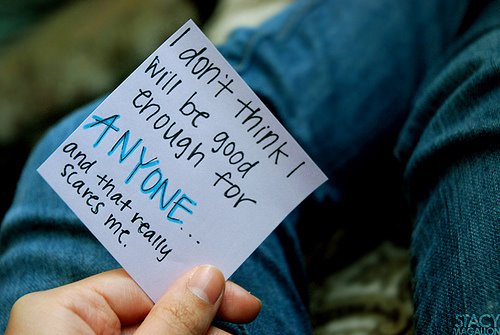 I don't think I
will be good
enough for
ANYONE...
and that really
scares me.
STACY